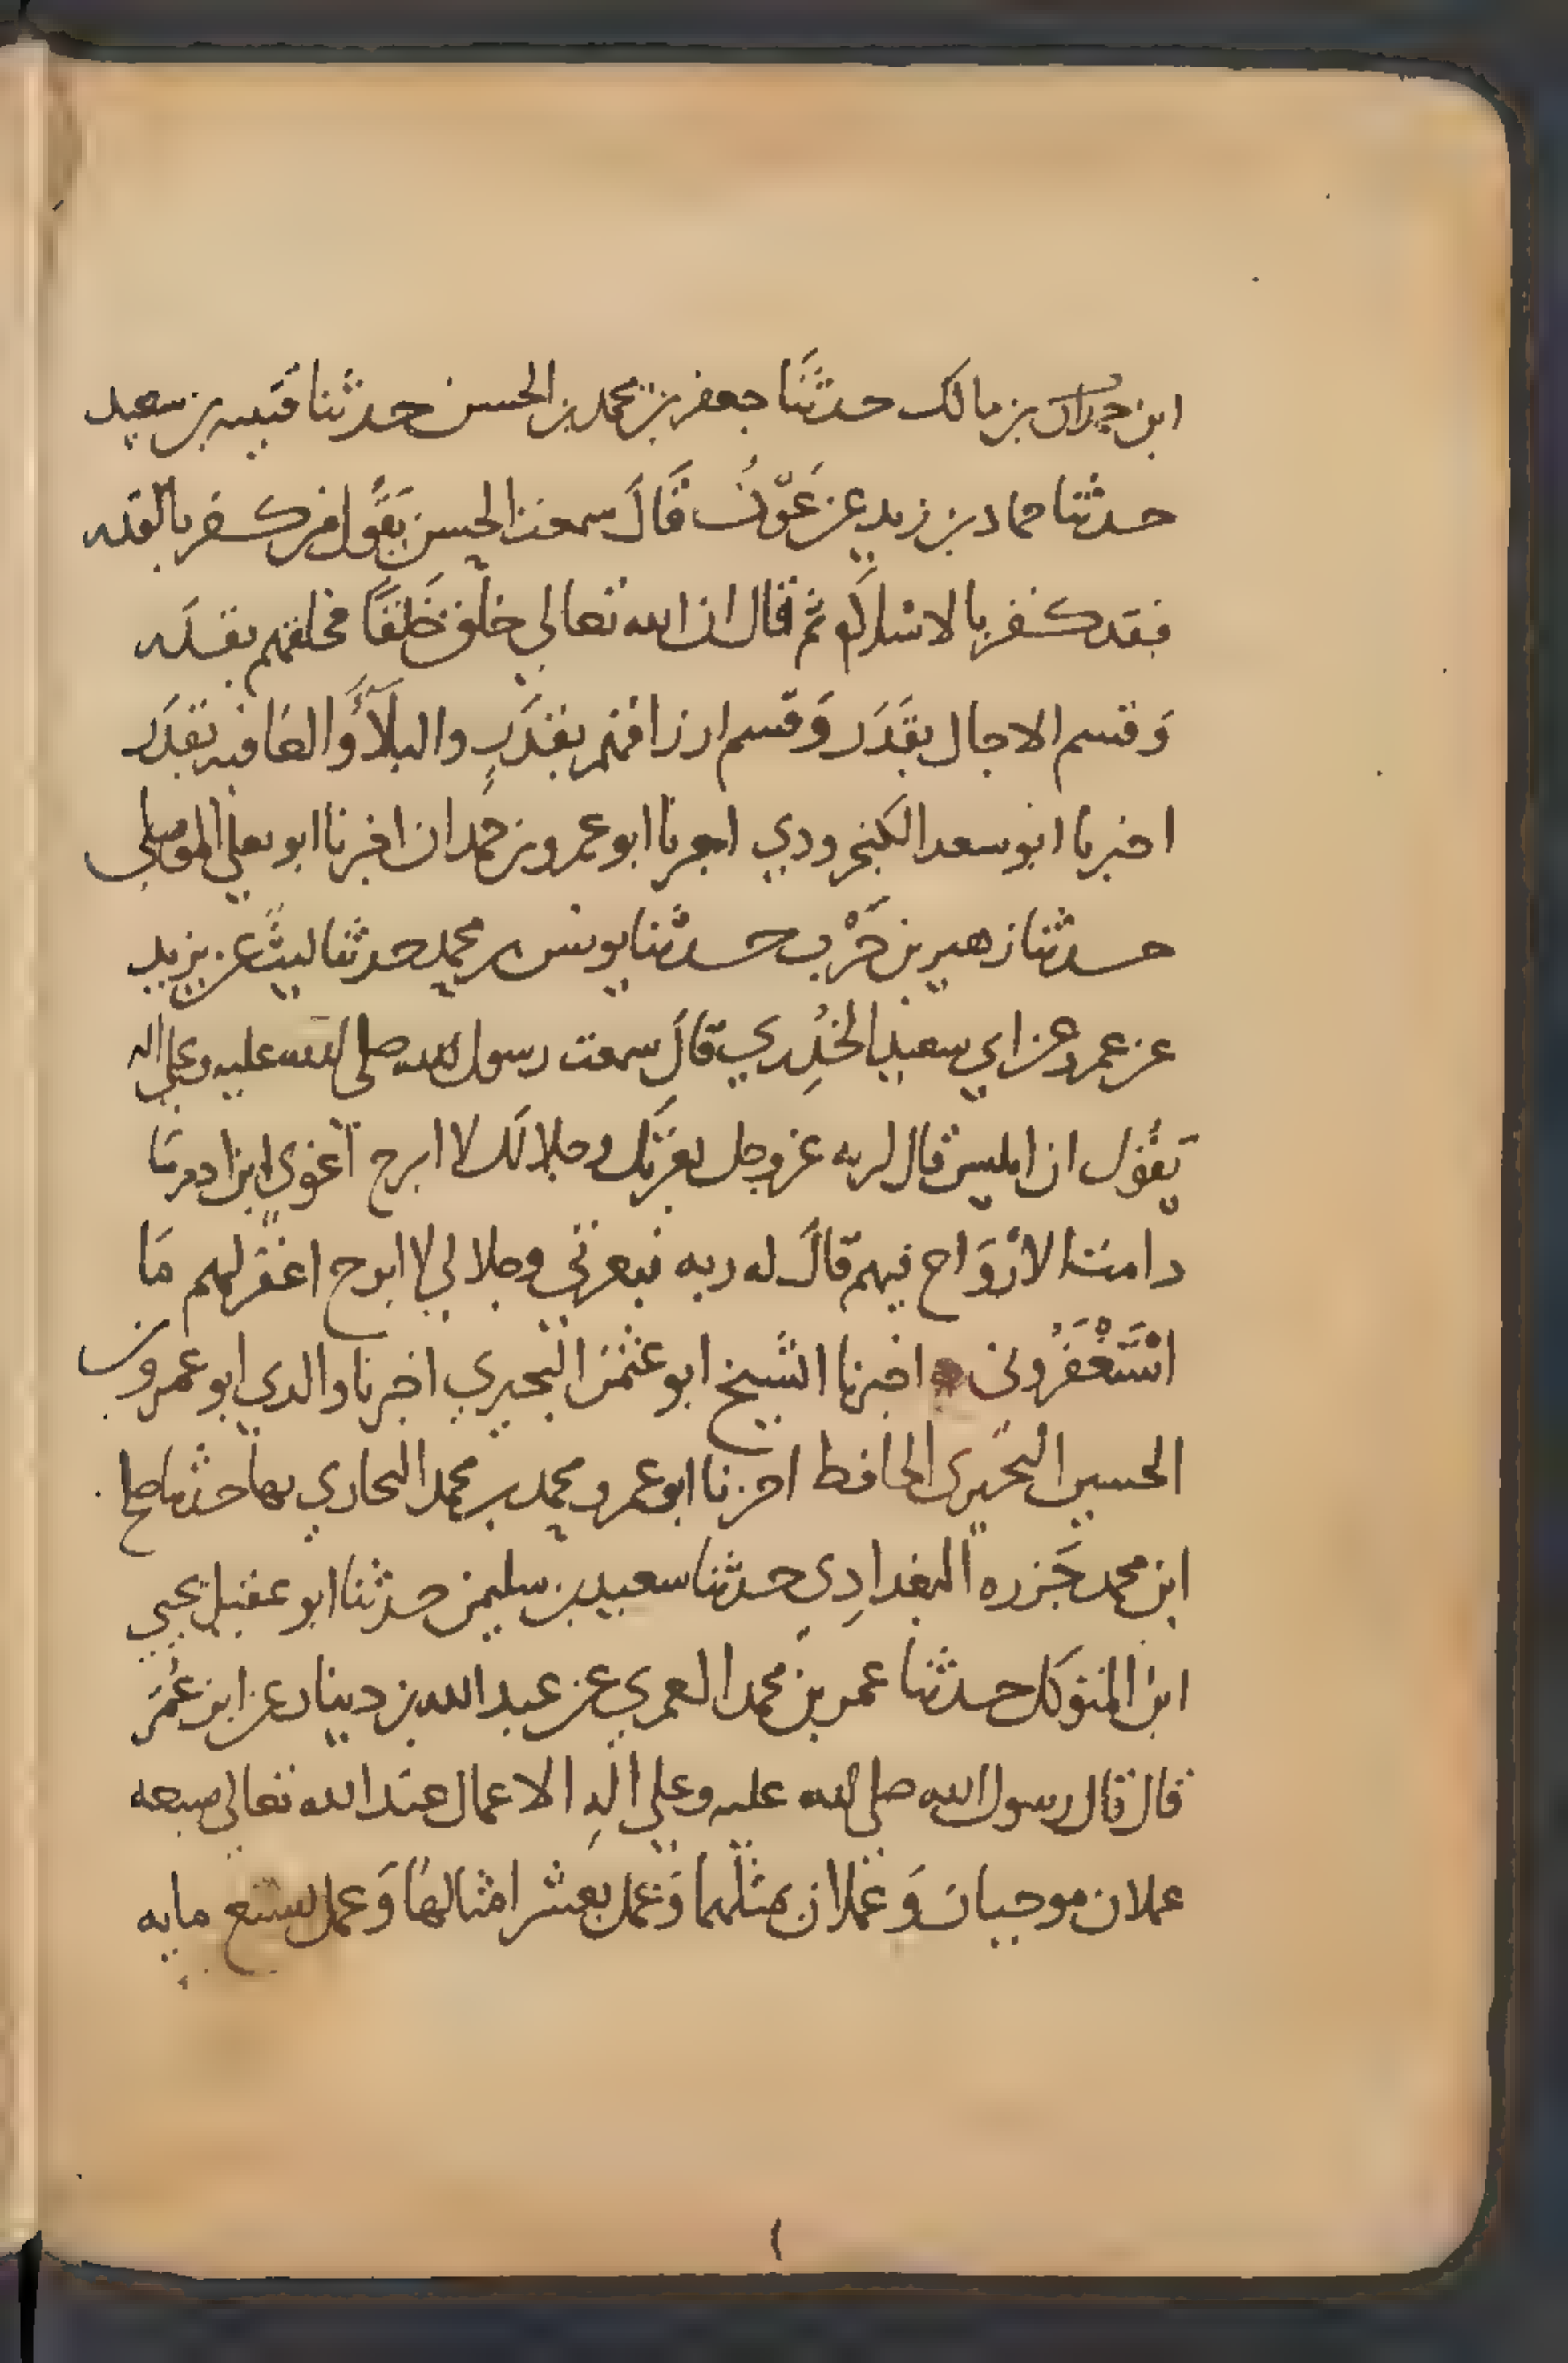 ابن حمدان بن مالك حدثنا جعفر بن محمد بن الحسن حدثنا قتيبه بن سعيد
حدثنا حماد بن زيد عن عَوْن قَالَ سمعت الحسن يَقُول من كفر بالقدر
فقد كفر بالاسلام ثم قال ان الله تعالي خلق خَلقًا فخلقهم بقدر
وَقسم الاجال بقَدَر وَقسم ارزاقهم بقدَرٍ والبلآءُ والعافيه بقدَر
اخبرنا ابو سعد الكنجرودي اخبرنا ابو عمرو بن حمدان اخبرنا ابو يعلي الموصلي
حدثنا زهير بن حَرْب حدثنا يونس بن محمد حدثنا ليث عن يزيد
عن عمرو عن ابي سعيد الخُدِري قالَ سمعت رسول الله صلى الله عليه وعلي اله
يَقُول ان ابليس قال لربه عز وجل بعزتك وجلالك لا ابرح اغوي ابن ادم مَا
دامت الارْوَاح فيهم قالَ له ربه فبعزتي وجلالي لا ابرح اغفر لهم مَا
اسْتَغْفَرُوني اخبرنا الشيخ ابو عثمن البحيري اخبرنا والدي ابو عمرو بن
الحسين البحيري الحافظ اخبرنا ابو عمرو محمد بن محمد البحاري بها حدثنا صالح
ابن محمد جَزره البغدادِي حدثنا سعيد بن سليمن حدثنا ابو عقيل يحيي
ابن المتوَكل حدثنا عمر بن محمد العمري عن عبد الله بن دينار عن ابن عُمَر
قال قال رسول الله صلى الله عليه وعلي الهِ الاعمال عند الله تعالي سبعه
عملان موجبان وَعملان بمثلهما وَعمل بعشر امثالها وَعمل بسبع مايه